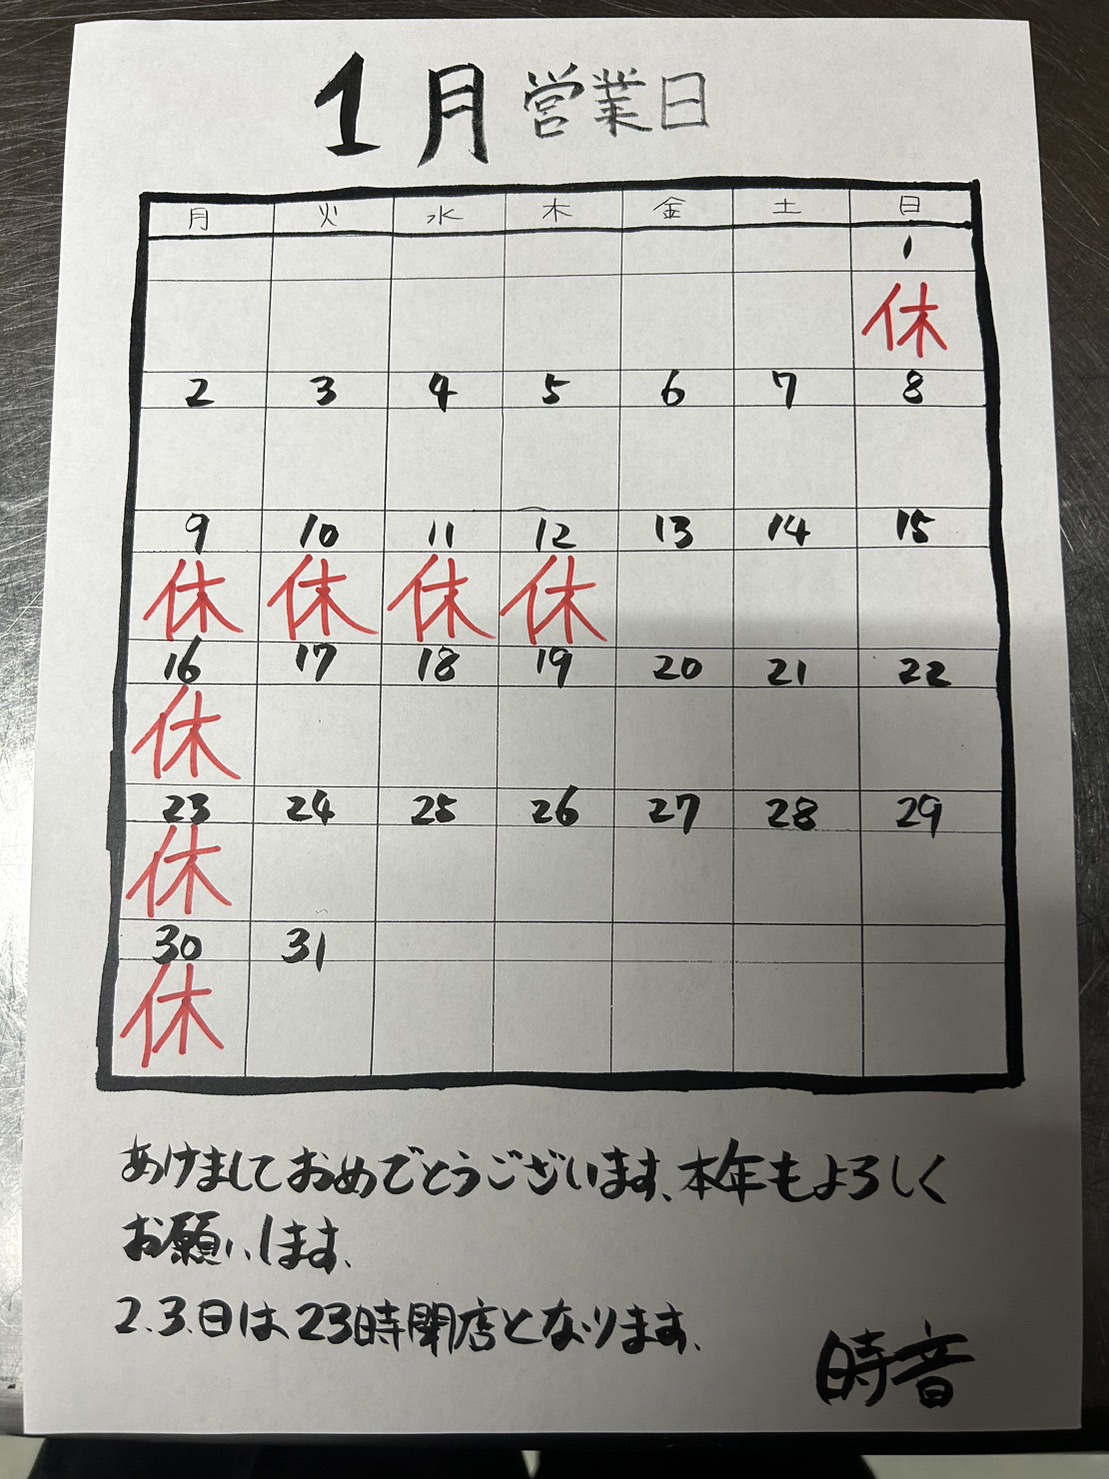 1月営業日
月 火 水 木 金 土 日
1
休
2 3 4 5 6 7 8
9 10 11 12 13 14 15
休 休 休 休
16 17 18 19 20 21 22
休
23 24 25 26 27 28 29
休
30 31
休
あけましておめでとうございます、本年もよろしく
お願いします、
2.3.日は23時閉店となります、
時音